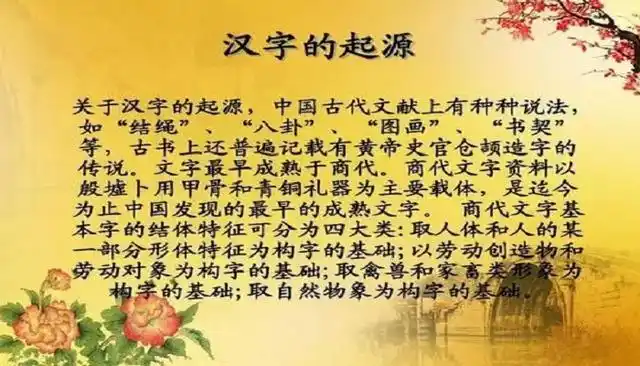 汉字的起源
关于汉字的起源，中国古代文献上有种种说法，
如“结绳”、“八卦”、“图画”、“书契”
等，古书上还普遍记载有黄帝史官仓颉造字的
传说。文字最早成熟于商代。商代文字资料以
殷墟卜用甲骨和青铜礼器为主要载体，是迄今
为止中国发现的最早的成熟文字。 商代文字基
本字的结体特征可分为四大类:取人体和人的某
一部分形体特征为构字的基础;以劳动创造物和
劳动对象为构字的基础;取禽兽和家畜类形象为
构字的基础;取自然物象为构字的基础。